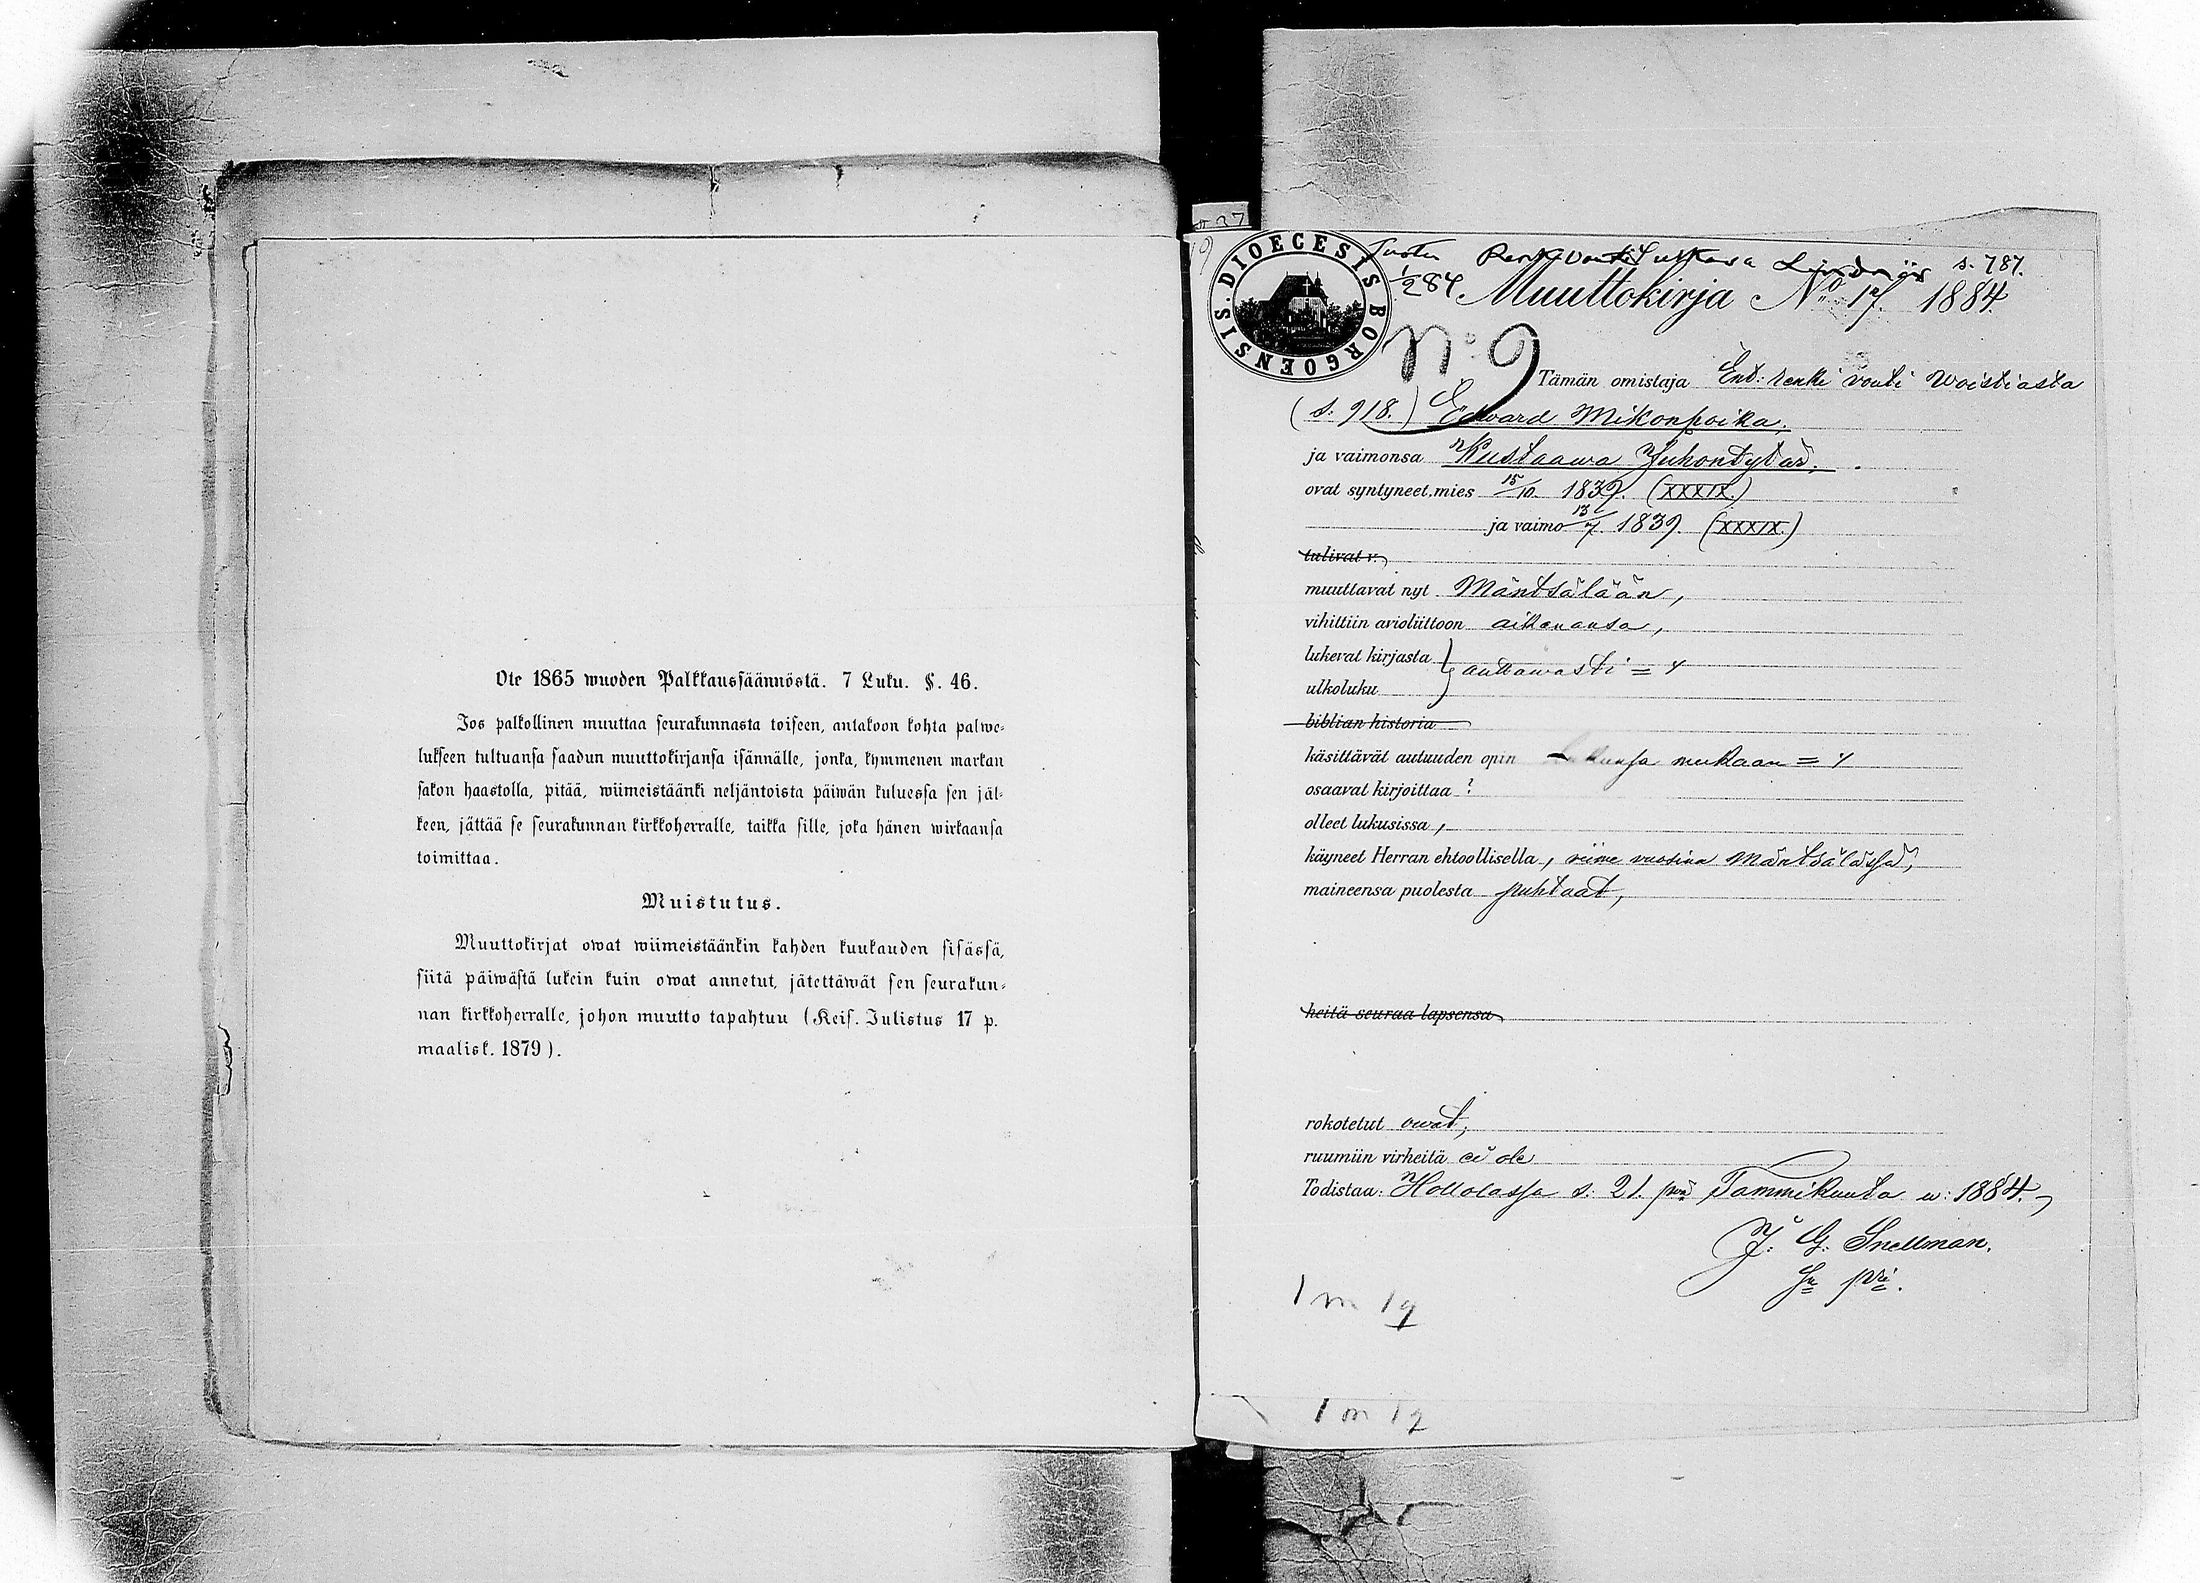 Ote 1865 wuoden Palkkaussäännöstä. 7 Luku. §. 46.
Jos palkollinen muuttaa seurakunnasta toiseen, antakoon kohta palwe-
lukseen tultuansa saadun muuttokirjansa isännälle, jonka, kymmenen markan
sakon haastolla, pitää, wiimeistäänki neljäntoista päiwän kuluessa sen jäl-
keen, jättää se seurakunnan kirkkoherralle, taikka sille, joka hänen wirkaansa
toimittaa.
Muistutus.
Muuttokirjat owat wiimeistäänkin kahden kuukauden sisässä,
siitä päiwästä lukein kuin owat annetut, jätettäwät sen seurakun-
nan kirkkoherralle, johon muutto tapahtuu (Keis. Julistus 17 p.
maalisk. 1879).
DIOECESIS BORGOENSIS.
s. 787.
Muuttokirja No 17. 1884.
N:o 9
Tämän omistaja Ent: renki vouti Woistiasta
(s. 918.) Edvard Mikonpoika,
ja vaimonsa Kustaawa Juhontytär,
ovat syntyneet, mies 15/10 1839. (XXXIX.)
ja vaimo 13/7. 1839. (XXXIX.)
tulivat v.
muuttavat nyt Mäntsälään,
vihittiin avioliittoon aikanansa,
lukevat kirjasta
auttawasti =
ulkoluku
biblian historia
käsittävät autuuden opin mukaan =
osaavat kirjoittaa ?
olleet lukusissa,
käyneet Herran ehtoollisella, viime vuosina Mäntsälässä,
maineensa puolesta puhtaat,
heitä seuraa lapsensa
rokotetut owat,
ruumiin virheitä ei ole
Todistaa: Hollolassa s. 21. pnä Tammikuuta w: 1884.
J. G. Snellman.
1 m 19
1 m 19